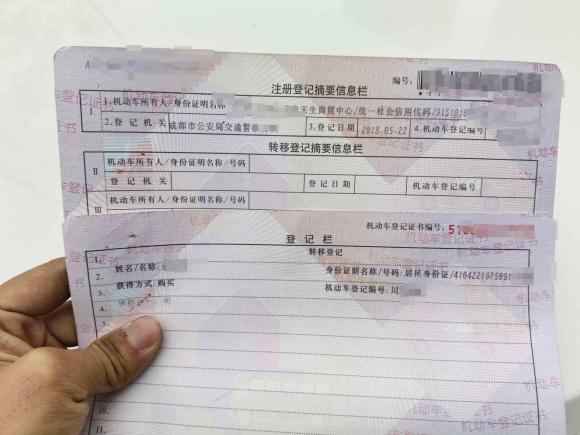 A
编号:
注册登记摘要信息栏
I
1.机动车所有人/身份证明名称 天生商贸中心/统一社会信用代码/9151010
2.登记机关 成都市公安局交通警察 3.登记日期 2018-05-22 4.机动车登记编号
转移登记摘要信息栏
II
机动车所有人/身份证明名称/号码
登记机关 登记日期 机动车登记编号
III
机动车所有人/身份证明名称/号码
机动车登记证书编号: 510
登记栏
1. 转移登记
2. 姓名/名称: 身份证明名称/号码: 居民身份证/4104221975091
3. 获得方式: 购买 机动车登记编号: 川
4.
5.
10.
11.
机动车登记证书